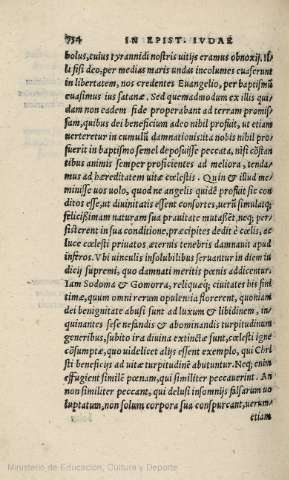 734 IN EPIST. IVDAE
bolus, cuius tyrannidi nostris uitijs eramus obnoxij. Il
li fisi deo, per medias maris undas incolumes euaserunt
in libertatem, nos credentes Euangelio, per baptismũ
euasimus ius satanæ. Sed quemadmodum ex illis qui-
dam non eadem fide properabant ad terram promis-
sam, quibus dei beneficium adeo nihil profuit, ut etiam
uerteretur in cumulũ damnationis: ita nobis nihil pro-
fuerit in baptismo semel deposuisse peccata, nisi cõstan
tibus animis semper proficientes ad meliora, tenda-
mus ad hæreditatem uitæ cœlestis. Quin & illud me-
minisse uos uolo, quod ne angelis quidẽ profuit sic con
ditos esse, ut diuinitatis essent consortes, uerũ simulatq;
felicissimam naturam sua prauitate mutassẽt, neq; per-
sisterent in sua conditione, præcipites dedit è cœlis, ac
luce cœlesti priuatos æternis tenebris damnauit apud
inferos. Vbi uinculis insolubilibus seruantur in diem iu
dicij supremi, quo damnati meritis pœnis addicentur.
Iam Sodoma & Gomorra, reliquæq; ciuitates his fini
timæ, quum omni rerum opulentia florerent, quoniam
dei benignitate abusi sunt ad luxum & libidinem, in-
quinantes sese nefandis & abominandis turpitudinum
generibus, subito ira diuina extinctæ sunt, cœlesti igne
cõsumptæ, quo uidelicet alijs essent exemplo, qui Chri
sti beneficijs ad uitæ turpitudinẽ abutuntur. Neq; enim
effugient similẽ pœnam, qui similiter peccauerint. An
non similiter peccant, qui delusi insomnijs falsarum uo
luptatum, non solum corpora sua conspurcant, uerum
etiam
Ministerio de Educación, Cultura y Deporte